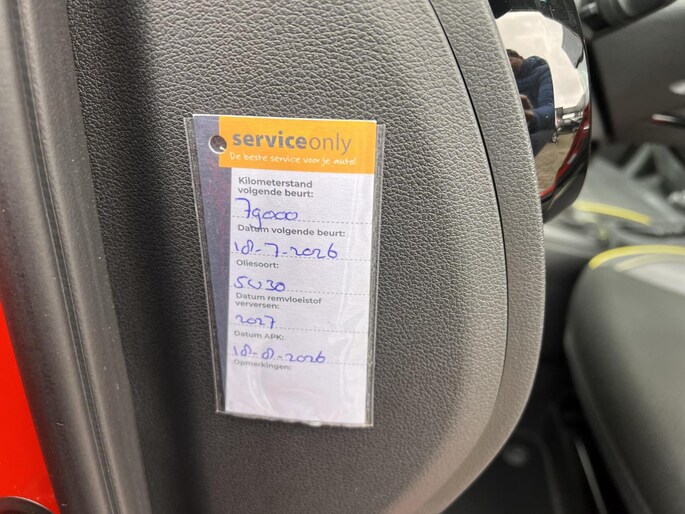 serviceonly
De beste service voor je auto!
Kilometerstand
volgende beurt:
79000
Datum volgende beurt:
18-7-2026
Oliesoort:
5W30
Datum remvloeistof
verversen:
2027
Datum APK:
18-8-2026
Opmerkingen: